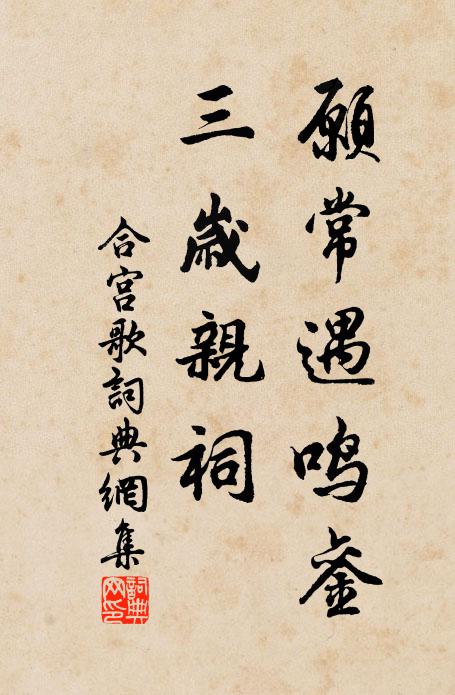 願常遇鸣銮
三歲親祠
合宮歌詞典網集
詞典网印